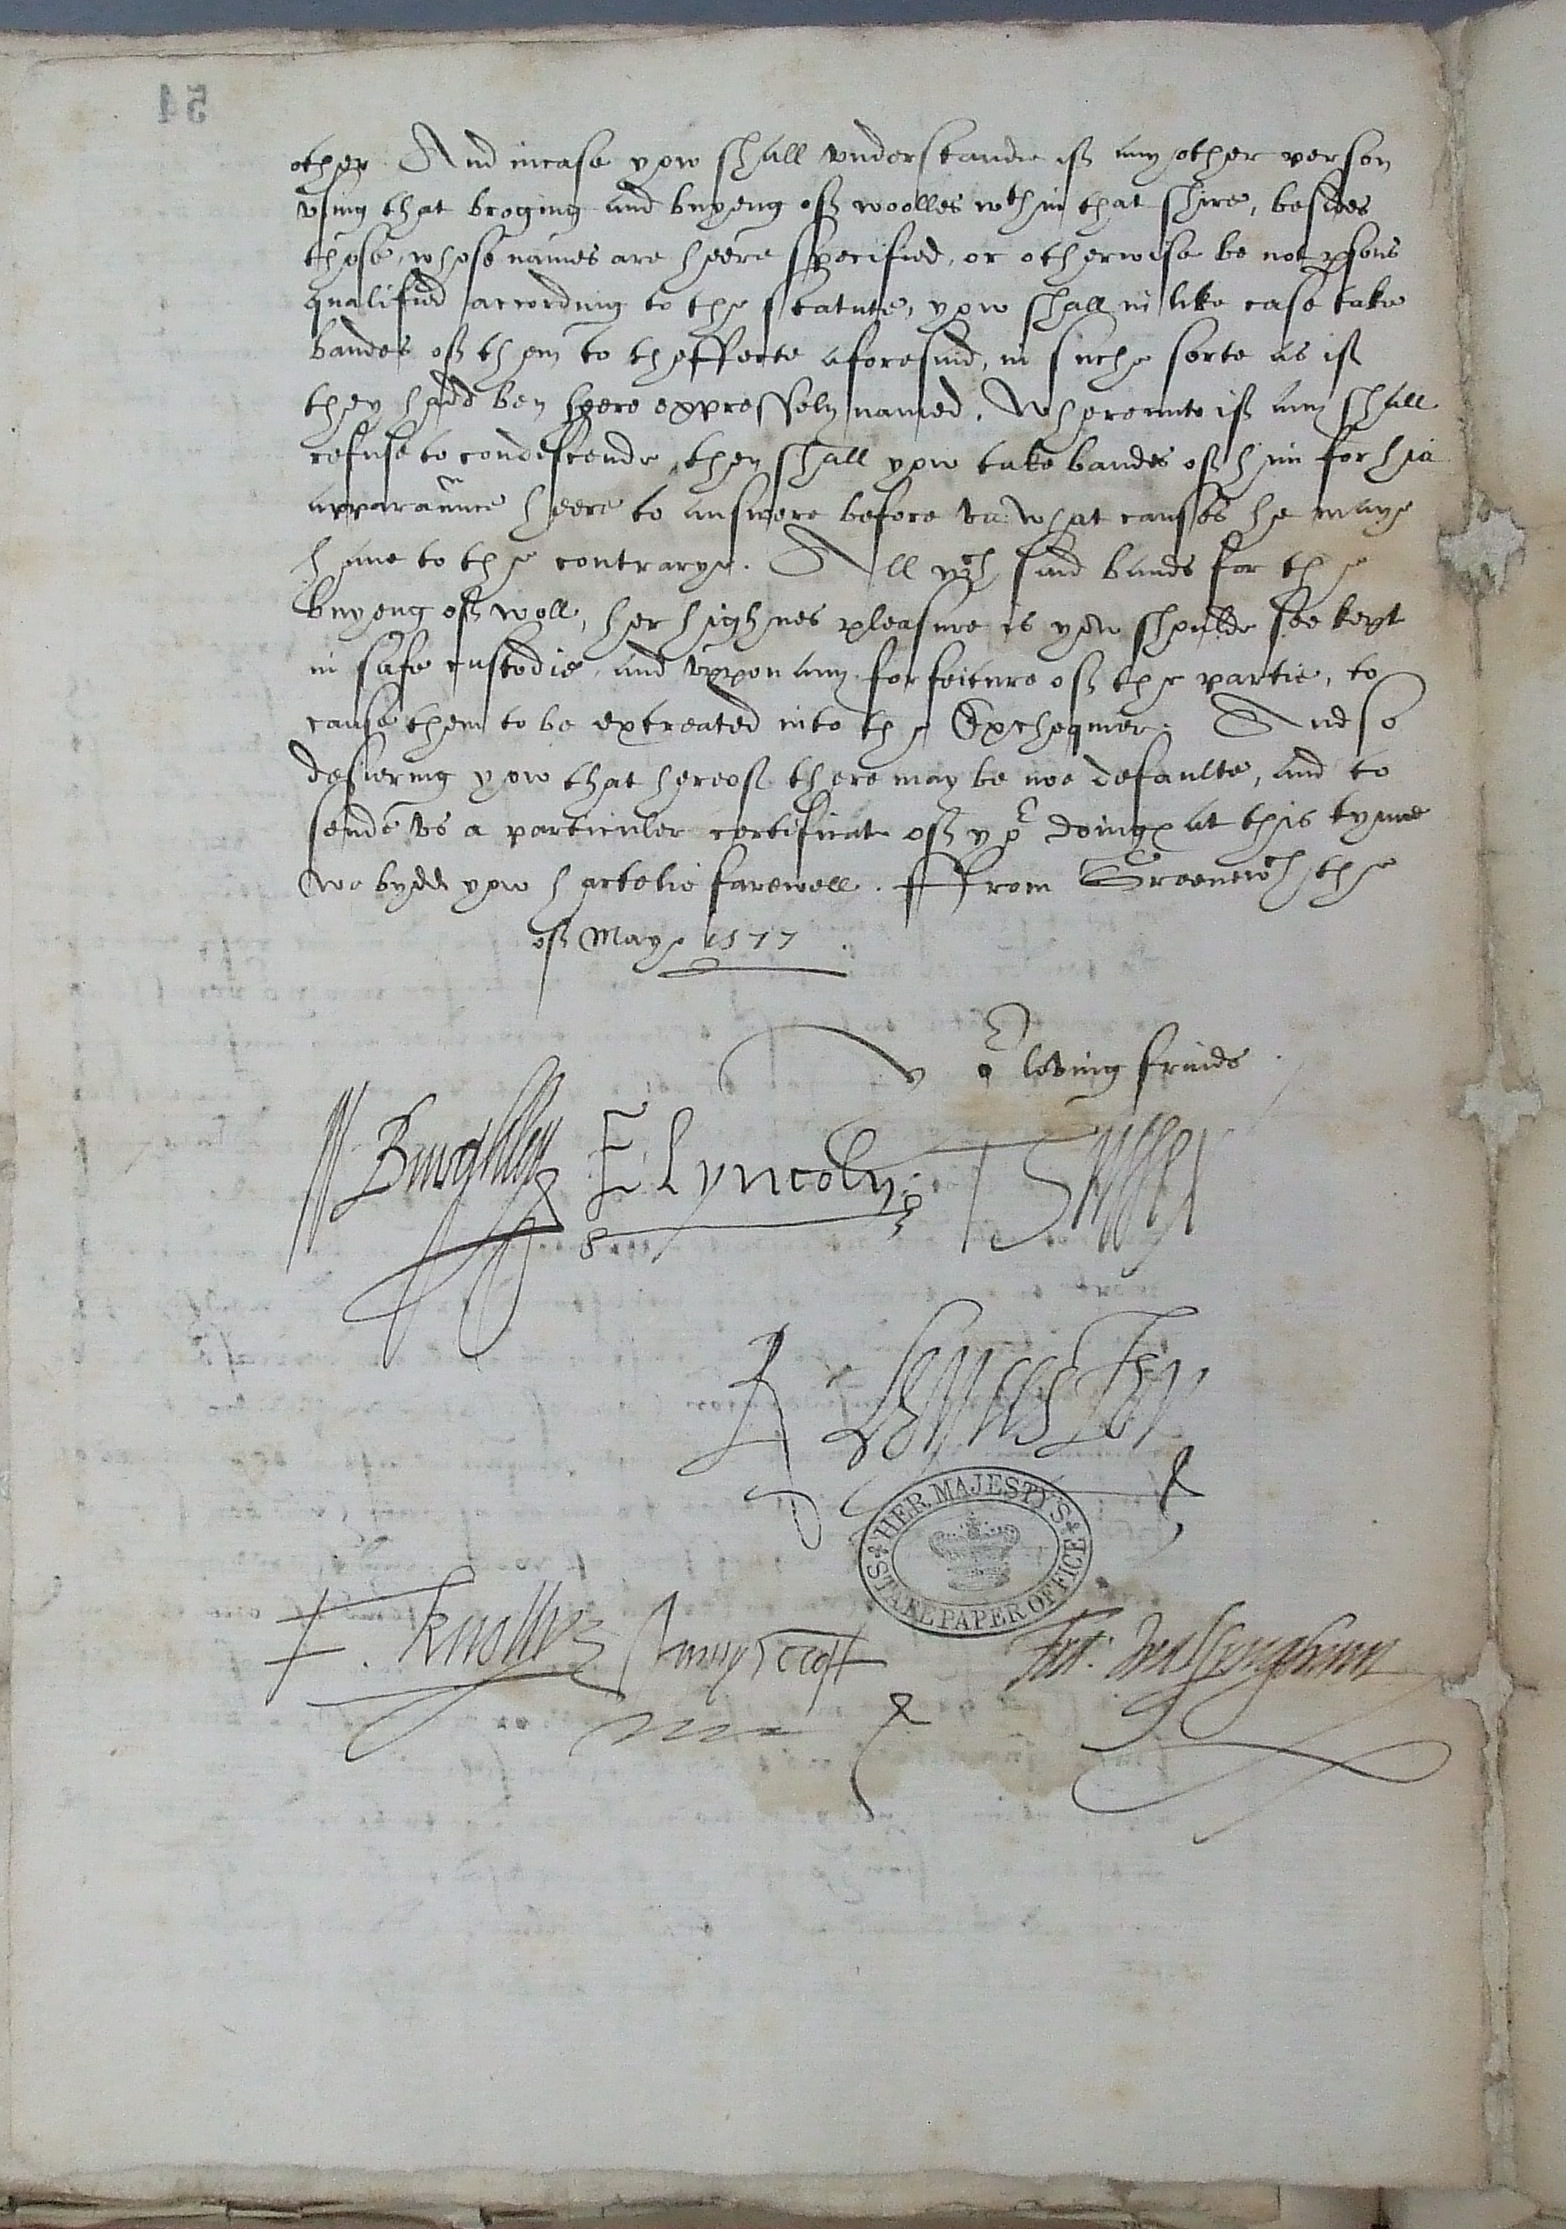 54
other And incase yow shall vnderstande iff any other person
vsing that broging and buyeng off woolles wthin that shire, besides
those, whose names are heere specified, or otherwise be not psons
qualified according to the statute, yow shall in like case take
bandes off them to theffecte aforesaid, in suche sorte as iff
they hadd ben heere expressely named. Wherevnto iff any shall
refuse to condescende, then shall yow take bandes off him for his
apparaunce heere to answere before vs what causes he maye
haue to the contrarye. All wch said bands for the
buyeng off woll, her highnes pleasure is yow shoulde see kept
in safe custodie, and vppon any forfeiture off the partie, to
cause them to be extreated into the Exchequier. And so
desiering yow that hereoff there may be noe defaulte, and to
sende vs a particuler certificat off yor doings at this tyme
we bydd yow hartelie farewell. ffrom Greenewch the
off Maye 1577
yor loving frinds
W Burghley E Lyncoln T Sussex
R Leycester
HER MAJESTY'S STATE PAPER OFFICE
F. Knollys James Croft Fra: Walsyngham